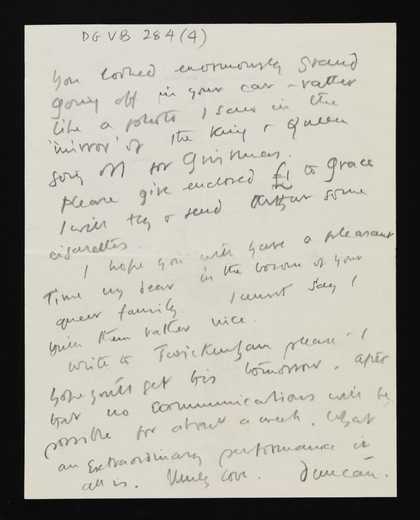 DG VB 284 (4)
You looked enormously grand
going off in your car – rather
like a photo I saw in the
'mirror' of the King & Queen
going off for Christmas.
Please give enclosed £1 to Grace
I will try & send Arthur some
cigarettes.
I hope you will have a pleasant
time my dear in the bosom of your
queer family. I must say I
think them rather nice.
Write to Twickenham please – I
hope you'll get this tomorrow. After
that no communications will be
possible for about a week. What
an extraordinary performance it
all is. Much love. Duncan.